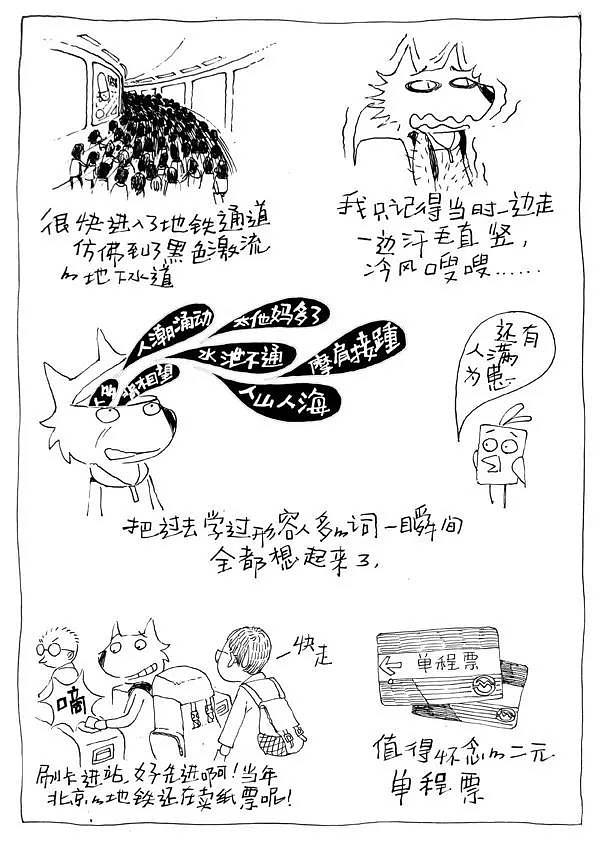 很快进入了地铁通道
仿佛到了黑色激流
的地下水道
我只记得当时一边走
一边汗毛直竖，
冷风嗖嗖……
人潮涌动
太他妈多了
水泄不通
摩肩接踵
相望
人山人海
还有
人满
为患
把过去学过形容人多的词一瞬间
全都想起来了，
快走
嘀
刷卡进站，好先进啊！当年
北京的地铁还在卖纸票呢！
单程票
值得怀念的二元
单程票